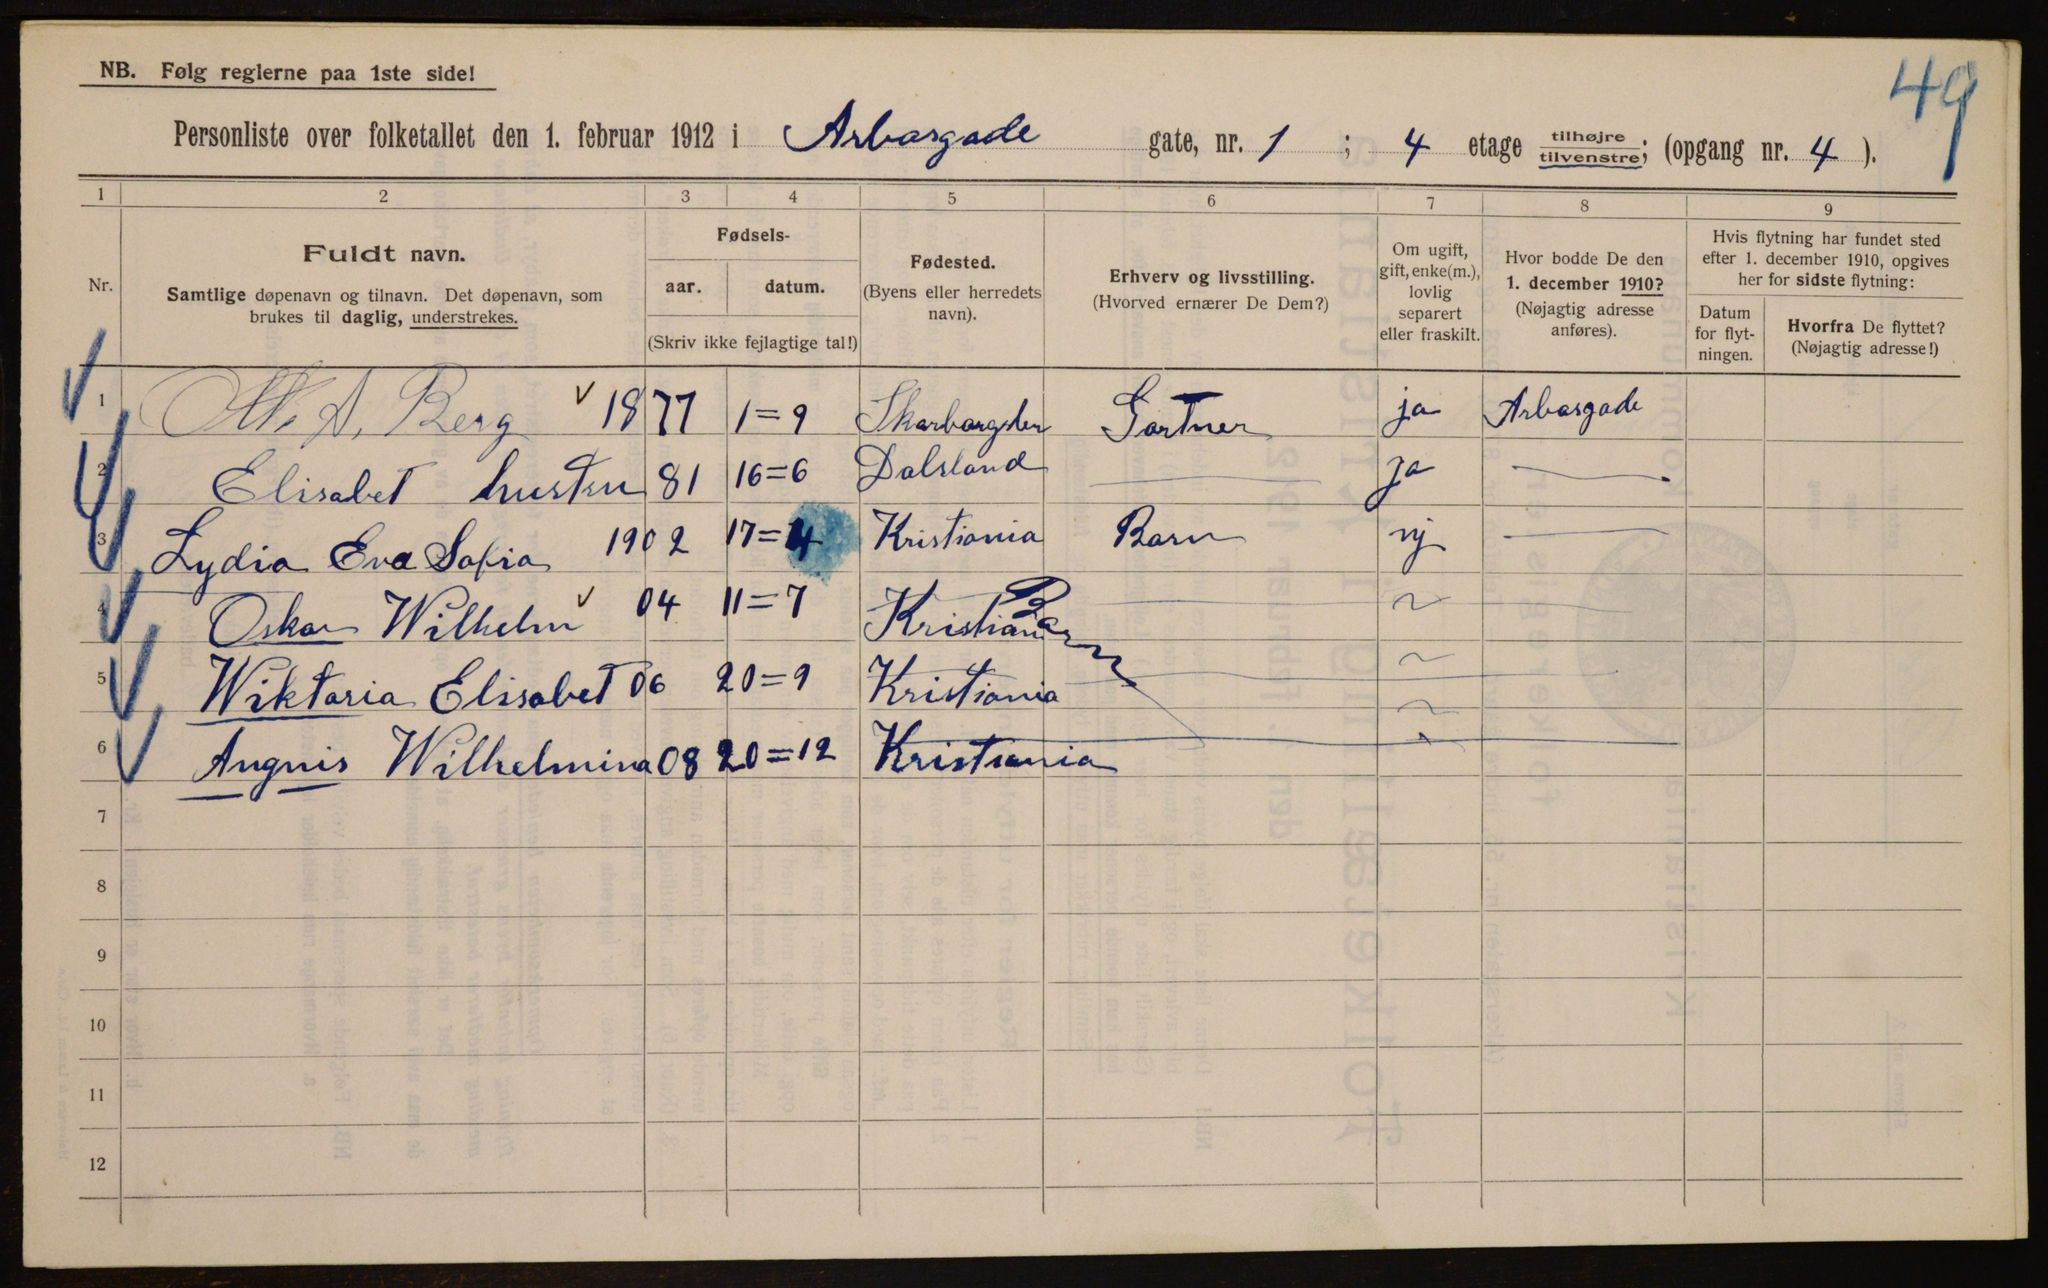 49
NB. Følg reglerne paa 1ste side!
Personliste over folketallet den 1. februar 1912 i Arbosgade gate, nr. 1 ; 4 etage tilhøjre tilvenstre; (opgang nr. 4 ).
1 2 3 4 5 6 7 8 9
Nr.
Fuldt navn.
Samtlige døpenavn og tilnavn. Det døpenavn, som
brukes til daglig, understrekes.
Fødsels-
aar. datum.
(Skriv ikke fejlagtige tal!)
Fødested.
(Byens eller herredets
navn).
Erhverv og livsstilling.
(Hvorved ernærer De Dem?)
Om ugift,
gift, enke(m.),
lovlig
separert
eller fraskilt.
Hvor bodde De den
1. december 1910?
(Nøjagtig adresse
anføres).
Hvis flytning har fundet sted
efter 1. december 1910, opgives
her for sidste flytning:
Datum
for flyt-
ningen.
Hvorfra De flyttet?
(Nøjagtig adresse!)
1 A. Berg 1877 1=9 Gartner ja Arbosgade
2 Elisabet hustru 81 16=6 Dalsland ja
3 Lydia Eva Sofia 1902 17=4 Kristiania Barn nj
4 Oskar Wilhelm 04 11=7 Kristiania Barn
5 Wiktoria Elisabet 06 20=9 Kristiania
6 Augnis Wilhelmina 08 20=12 Kristiania
7
8
9
10
11
12